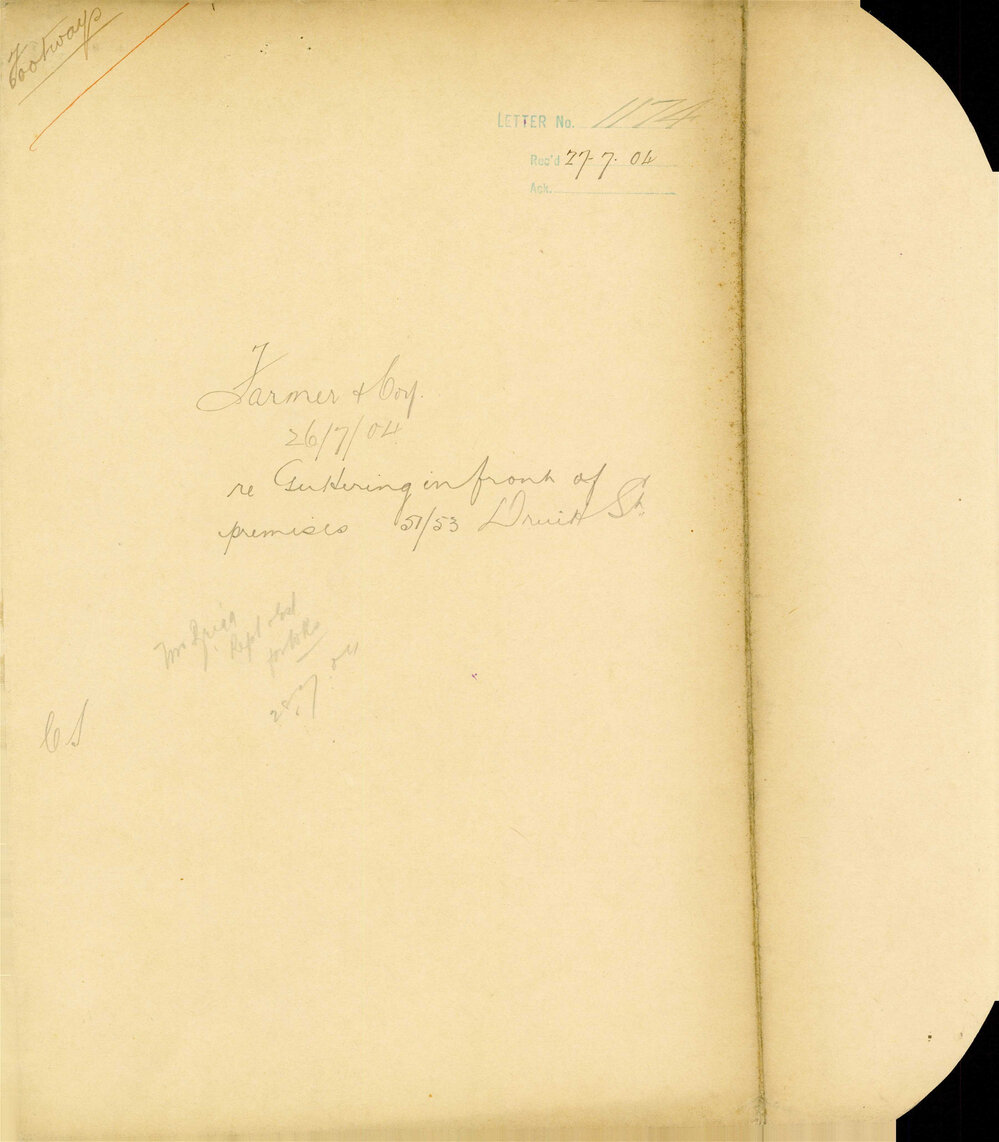 Footways
LETTER No. 1174
Rec'd 27-7-04
Ack.
Farmer & Coy.
26/7/04
re Guttering in front of
premises 51/53 Druitt St.
Mr
Rept
for
28/7/04
CS